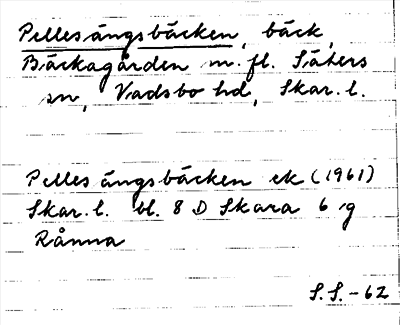 Pellesängsbäcken, bäck,
Bäckagården m.fl. Säters
sn, Vadsbo hd, Skar. l.
Pellesängsbäcken ek (1961)
Skar. l. bl. 8 D Skara 6 g
Rånna
S.S.-62